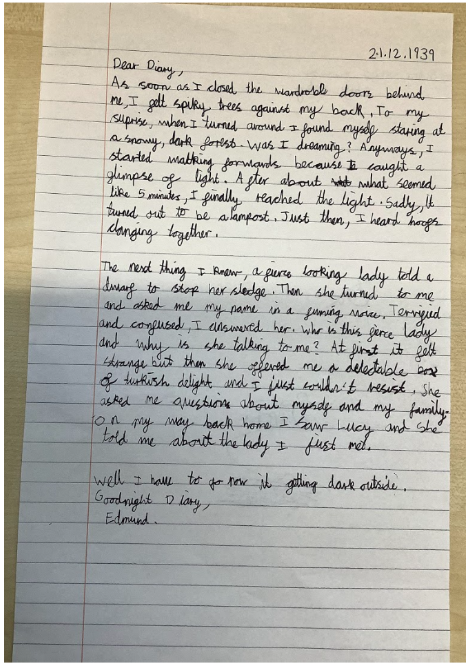 21.12.1939
Dear Diary,
As soon as I closed the wardrobe doors behind
me, I felt spiky trees against my back. To my
suprise, when I turned around I found myself staring at
a snowy, dark forest. Was I dreaming? Anyways, I
started walking forwards because I caught a
glimpse of light. After about what seemed
like 5 minutes, I finally reached the light. Sadly, It
turned out to be a lampost. Just then, I heard hoofs
clanging together.
The next thing I knew, a fierce looking lady told a
dwarf to stop her sledge. Then she turned to me
and asked me my name in a fuming voice. Terrified
and confused, I answered her. Who is this fierce lady
and why is she talking to me? At first it felt
strange but then she offered me a delectable box
of turkish delight and I just couldn't resist. She
asked me questions about myself and my family.
On my way back home I saw Lucy and she
told me about the lady I just met.
Well I have to go now it getting dark outside.
Goodnight Diary,
Edmund.